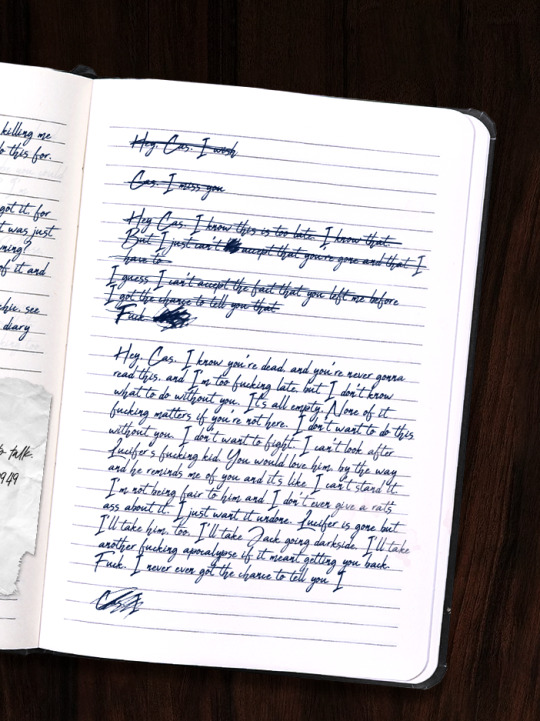 killing me
this for.
got it, for
t was just
ming?
of it and
see
diary
talk.
1949
Hey, Cas, I wish
Cas, I miss you
Hey Cas, I know this is too late, I know that
But I just can't accept that you're gone and that I
have to
I guess I can't accept the fact that you left me before
I got the chance to tell you that
Fuck
Hey, Cas, I know you're dead, and you're never gonna
read this, and I'm too fucking late, but I don't know
what to do without you. It's all empty. None of it
fucking matters if you're not here. I don't want to do this
without you. I don't want to fight, I can't look after
Lucifer's fucking kid. You would love him, by the way
and he reminds me of you and it's like I can't stand it.
I'm not being fair to him and I don't even give a rat's
ass about it. I just want it undone. Lucifer is gone but
I'll take him, too. I'll take Jack going darkside. I'll take
another fucking apocalypse if it meant getting you back.
Fuck. I never even got the chance to tell you I